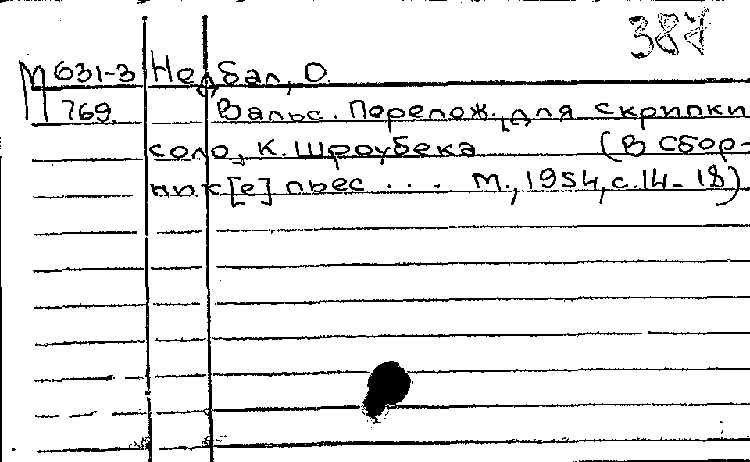 387
М 631-3 Недбал, О.
769. Вальс. Перелож. для скрипки
соло, К. Шроубека (В сбор-
ник[е] пьес ... М., 1954, с. 14-18)